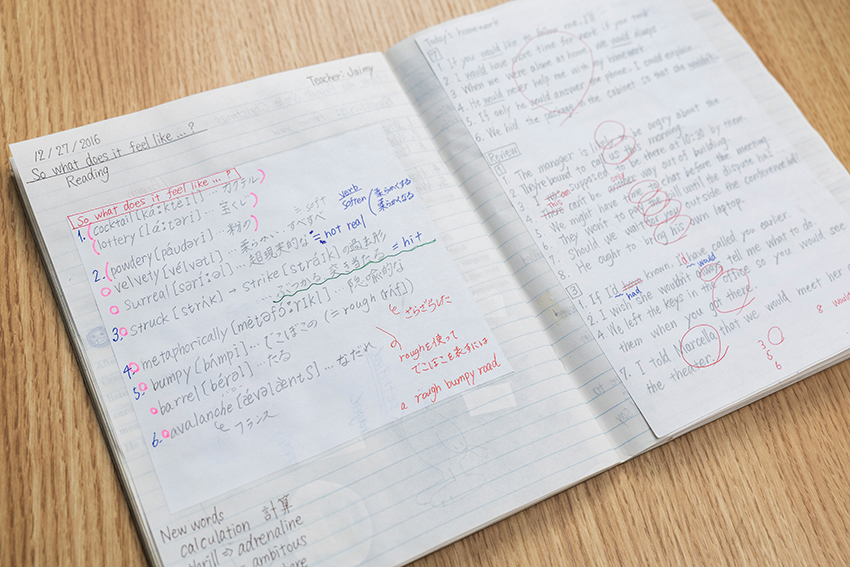 Teacher: Jaimy
12/27/2016
So what does it feel like ...?
Reading
So what does it feel like ...?
1. cocktail [ká:ktèil] ... カクテル
lottery [lá:təri] ... 宝くじ
2. powdery [páudəri] ... 粉の
velvety [vélvəti] ... 柔らかい、すべすべ
soft
verb
soften
柔らかくする
柔らかくなる
surreal [sərí:əl] ... 超現実的な = not real
3. struck [strʌ́k] → strike [stráik] の過去形
... ぶつかる, 突き当たる = hit
4. metaphorically [mètəfɔ́:rɪkl] ... 隠喩的な
5. bumpy [bʌ́mpi] ... でこぼこの (= rough [rʌ́f])
ざらざらした
barrel [bǽrəl] ... たる
roughを使って
でこぼこを表すには
a rough bumpy road
6. avalanche [ǽvəlæ̀ntʃ] ... なだれ
フランス
New words
calculation 計算
thrill ⇒ adrenaline
ambitious
Today's homework
1. If you would like to follow me, I'll
2. I would have more time for work if you took
3. When we were alone at home we would always
4. He would never help me with my homework
5. If only he would answer the phone. I could explain
6. We hid the package in the cabinet so that she wouldn't
Review
1
1. The manager is likely to be angry about the
2. They're bound to call us this morning.
3. supposed be there at 10:30 by them
4. There can't be another way out of building.
5. We might have one to chat before the meeting
6. They won't to pay the bill until the dispute has
7. Should we wait for you outside the conference hall
8. He ought to bring his own laptop.
3
1. If I'd known, I'd have called you earlier
had
would
2. I wish she wouldn't always tell me what to do
4. We left the keys in the office so you would see
them when you got there.
7. I told Marcella that we would meet her
the theater.
3
5
6
8